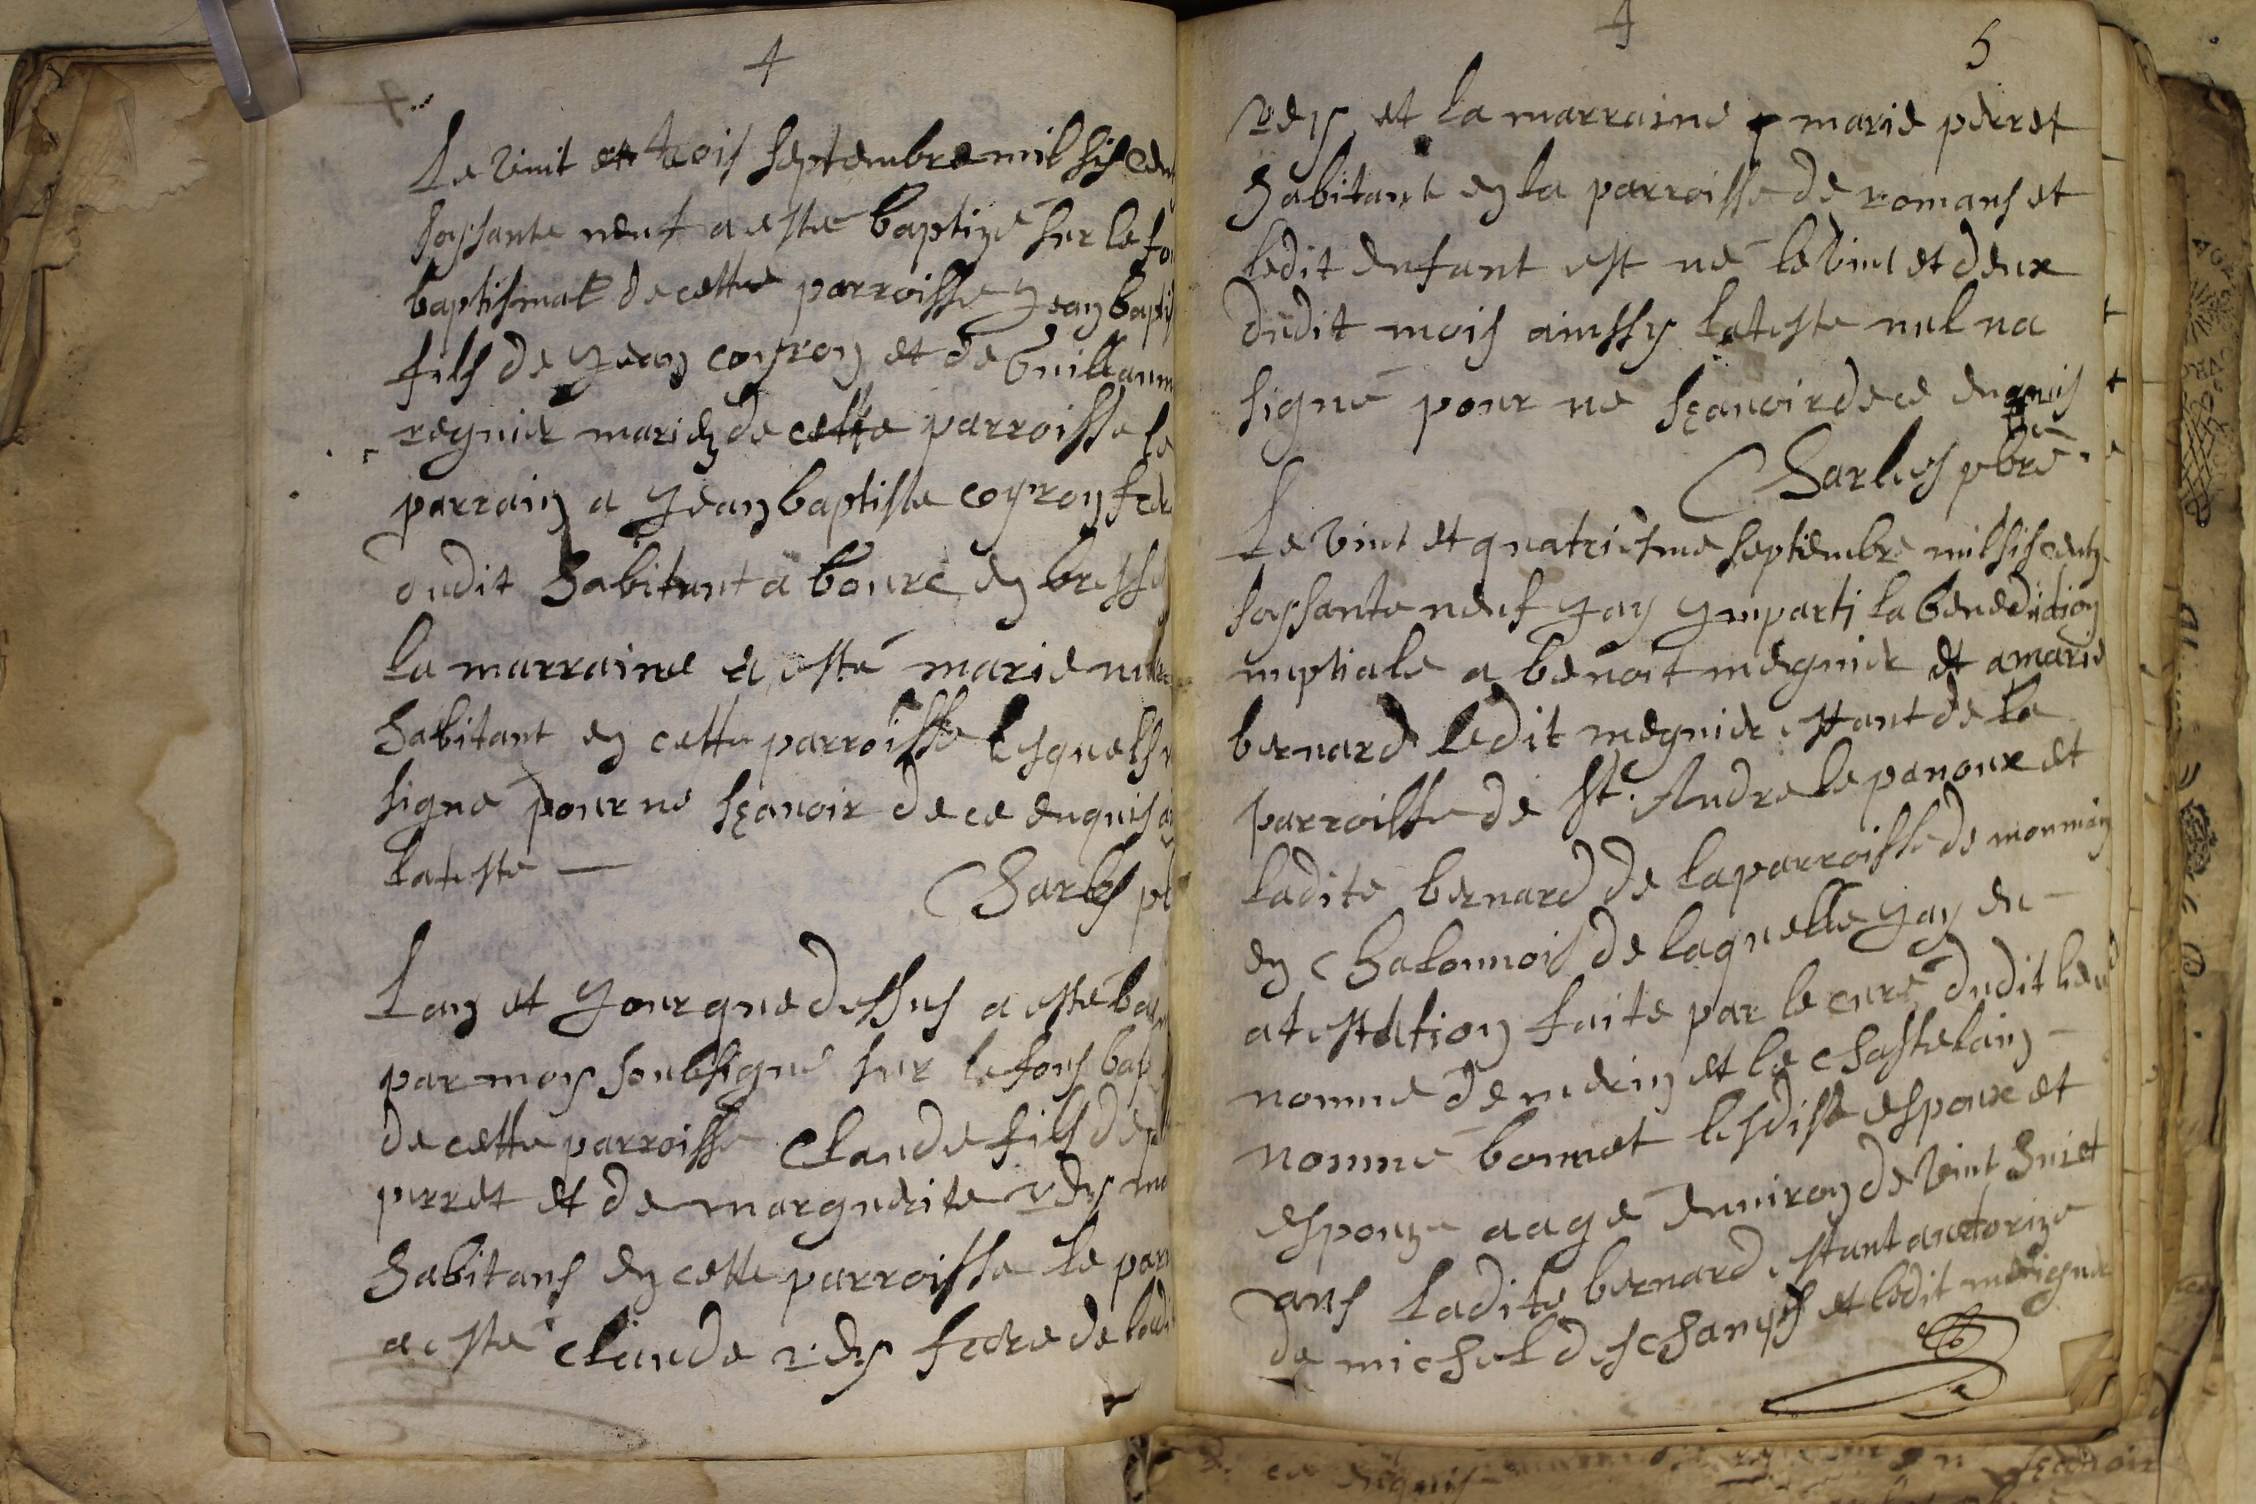 4
Le vint et trois septembre mil sis cen
soyssante neuf a este baptizé sur le fo
baptismal de cette parroisse Jean bapti
fils de Jean coyron et de Guillaum
regnier mariez de cette parroisse le
parrain a Jean baptiste coyron frer
dudit habitant a bourc en bresse
la marraine a esté marie
habitant en cette parroisse lesquels n
signe pour ne sçauoir de ce enquis
lateste —
Charles pb
Lan et Jour que dessus a esté bap
par moy soubsigné sur le fons bap
de cette parroisse Claude fils de
perret et de marguerite rey ma
habitans en cette parroisse le parr
a este claude rey frere de ladi
4 5
rey et la marraine marie perret
habitant en la parroisse de romans et
ledit enfant est né le vint et deux
dudit mois ainssy lateste nul na
signé pour ne sçauoir de ce enquis
Charles pbré.
Le vint et quatriesme septembre mil sis centz
soyssante neuf Jay Jmparti la benediction
nuptiale a benoit megnier et a marie
bernard ledit megnier estant de la
parroisse de st. Andre le panoux et
ladite bernard de la parroisse de
en chalonnois de laquelle Jay eu —
atestation faite par le curé dudit lieu
nommé et le chastelain —
nommé bonnet lesdits espoux et
espouze aagé enuiron de vint huict
ans ladite bernard estant auctorize
de michel et ledit